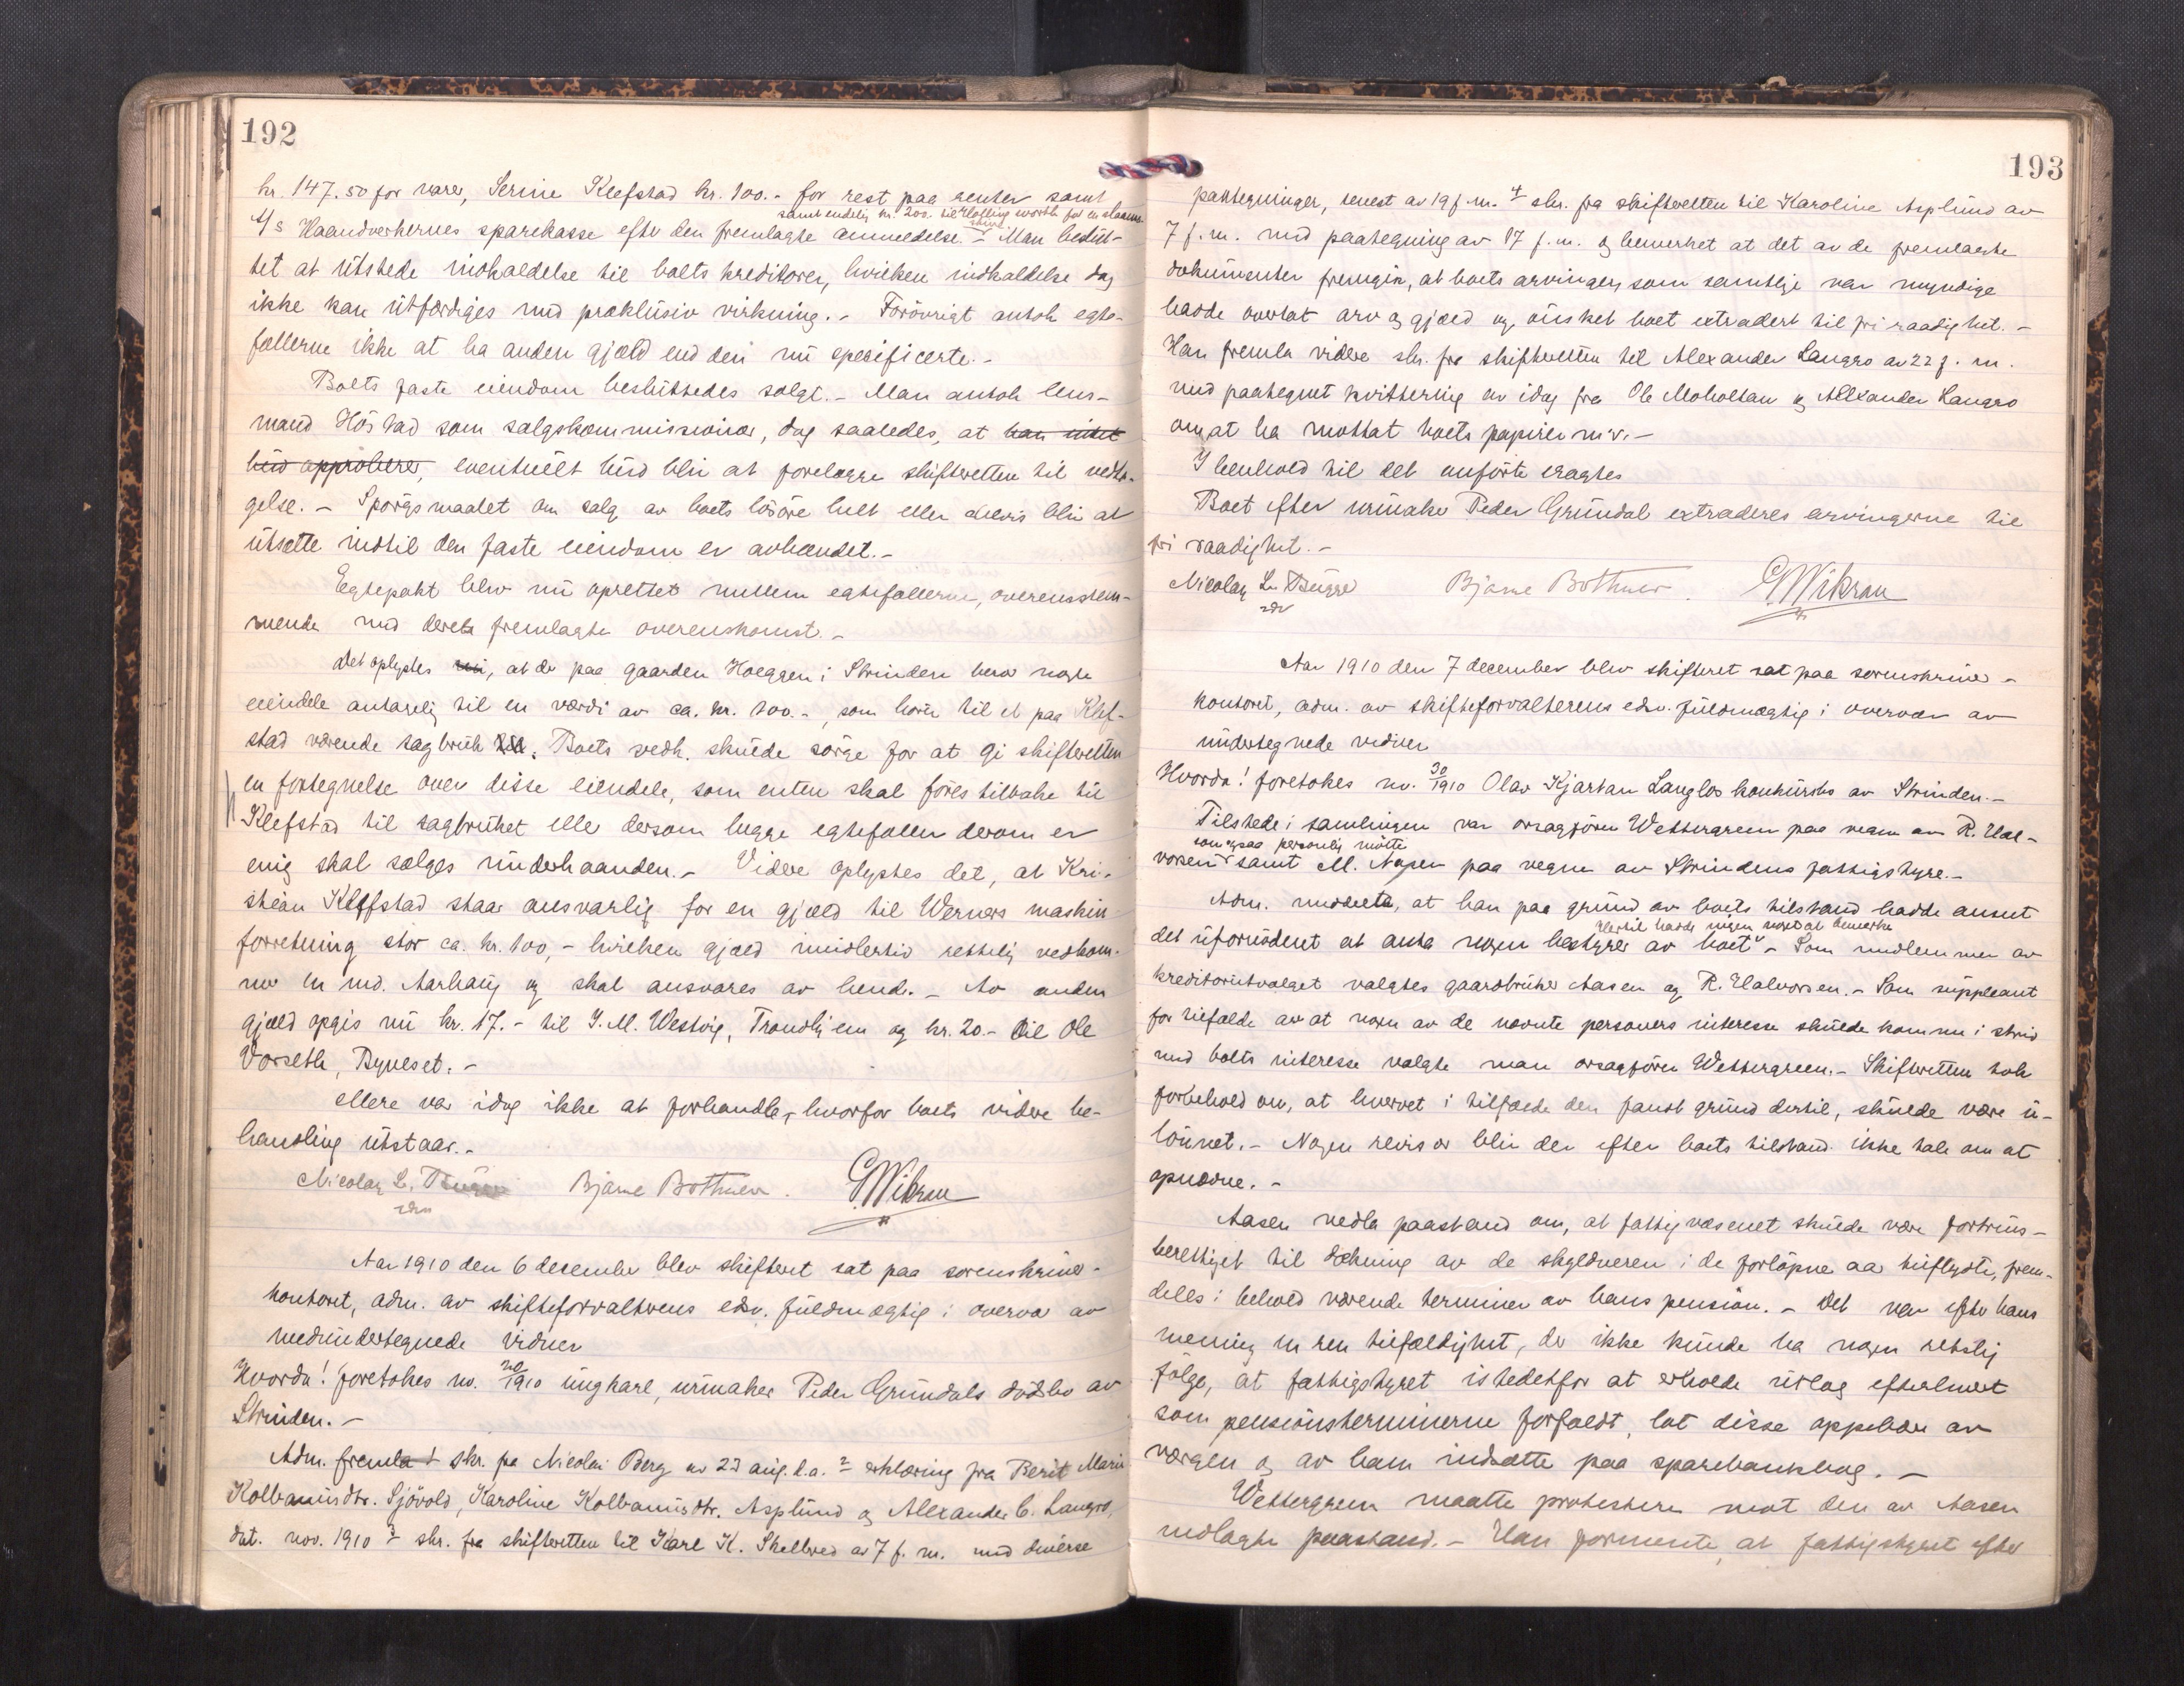 192
kr. 147.50 for varer, Serine Klefstad kr. 100.- for rest paa renter samt
samt endelig kr. 200. til Hollingsworth for en slaamaskine.
A/s Haandverkernes sparekasse efter den fremlagte anmeldelse. - Man beslut-
tet at utstede indkaldelse til boets kreditorer, hvilken indkaldelse dog
ikke kan utfærdiges med proklusiv virkning. - Forövrigt antok egte-
fællerne ikke at ha anden gjæld end den nu specificerte. -
Boets faste eiendom besluttedes solgt. - Man antok lens-
mand Höstad som salgskommissionær, dog saaledes, at han intet
bud approberer, eventuelt bud blir at forelægge skifteretten til vedta-
gelse. - Spörgsmaalet om salg av boets lösöre helt eller delvis blir at
utsætte indtil den faste eiendom er avhændet. -
Egtepakt blev nu oprettet mellem egtefællerne, overensstem-
mende med deres fremlagte overenskomst. -
Det oplystes nu, at der paa gaarden Hoeggen i Strinden bero nogle
eiendele antagelig til en værdi av ca. kr. 100. -, som hörer til et paa Klef-
stad værende sagbruk. Boets vedk. skulde sörge for at gi skifteretten
en fortegnelse over disse eiendele, som enten skal föres tilbake til
Klefstad til sagbruket eller dersom begge egtefæller derom er
enig skal sælges underhaanden. - Videre oplystes det, at Kri-
stian Klefstad staar ansvarlig for en gjæld til Werners maskin
forretning stor ca. kr. 100, - hvilken gjæld imidlertid rettelig vedkom-
mer en md. Aarhaug og skal ansvares av hende. - Av anden
gjæld opgis nu kr. 17. - til J. M. Westvig, Trondhjem og kr. 20. - til Ole
Vorseth, Byneset. -
ellers var idag ikke at forhandle, hvorfor boets videre be-
handling utstaar. -
Nicolay L. Bugge Bjarne Bothner. G Wikran
edv
Aar 1910 den 6 december blev skifteret sat paa sorenskriver-
kontoret, adm. av skifteforvalterens edsv. fuldmægtig i overvær av
medundertegnede vidner
Hvorda! foretokes no. 20/1910 ungkarl, urmaker Peder Grundals dödsbo av
Strinden. -
Adm. fremla 1 skr. fra Nicolai Berg av 23 aug. d.a. 2 erklæring fra Berit Marie
Kolbanusdtr. Sjövold, Karoline Kolbanusdtr. Asplund og Alexander C. Langro,
dat. nov. 1910 3 skr. fra skifteretten til Karl K. Skelbred av 7 f. m. med diverse
193
paategninger, senest av 19 f. m. 4 skr. fra skifteretten til Karoline Asplund av
7 f. m. med paategning av 17 f. m. og bemerket at det av de fremlagte
dokumenter fremgik, at boets arvinger, som samtlige var myndige
hadde overtat arv og gjæld og önsket boet extradert til fri raadighet. -
Han fremla videre skr. fra skifteretten til Alexander Langro av 22 f. m.
med paategnet kvittering av idag fra Ole Moholtan og Alexander Langro
om at ha mottat boets papirer m.v. -
I henhold til det anförte eragtes
Boet efter urmaker Peder Grundal extraderes arvingerne til
fri raadighet. -
Nicolay L. Bugge Bjarne Bothner. G Wikran
edv
Aar 1910 den 7 december blev skifteret sat paa sorenskriver-
kontoret, adm. av skifteforvalterens edsv. fuldmægtig i overvær av
undertegnede vidner
Hvorda! foretokes no. 30/1910 Olav Kjartan Langlos konkursbo av Strinden. -
Tilstede i samlingen var orsagförer Wettergreen paa vegne av R. Hal-
som ogsaa personlig mötte
vorsen samt M. Aasen paa vegne av Strindens fattigstyre. -
Adm. meddelte, at han paa grund av boets tilstand hadde anseet
Hertil hadde ingen noget at bemerke
det ufornödent at anta nogen bestyrer av boet. - Som medlemmer av
kreditorutvalget valgtes gaardbruker Aasen og R. Halvorsen. - Som suppleant
for tilfælde av at nogen av de nævnte personers interesse skulde komme i strid
med boets interesse valgte man orsagförer Wettergreen. - Skifteretten tok
forbehold om, at hvervet i tilfælde den fandt grund dertil, skulde være u-
lönnet. - Nogen revisor blir der efter boets tilstand ikke tale om at
opnævne. -
Aasen nedla paastand om, at fattigvæsenet skulde være fortrins-
berettiget til dækning av de skyldneren i de forlöpne aar tilflydte, frem-
deles i behold værende terminer av hans pension. - Det var efter hans
mening en ren tilfældighet, der ikke kunde ha nogen retslig
fölge, at fattigstyret istedetfor at erholde utlæg efterhvert
som pensionsterminerne forfaldt, lot disse oppebære av
værgen og av ham indsætte paa sparebankbog. -
Wettergreen maatte protestere mot den av Aasen
nedlagte paastand. - Han formente, at fattigstyret efter